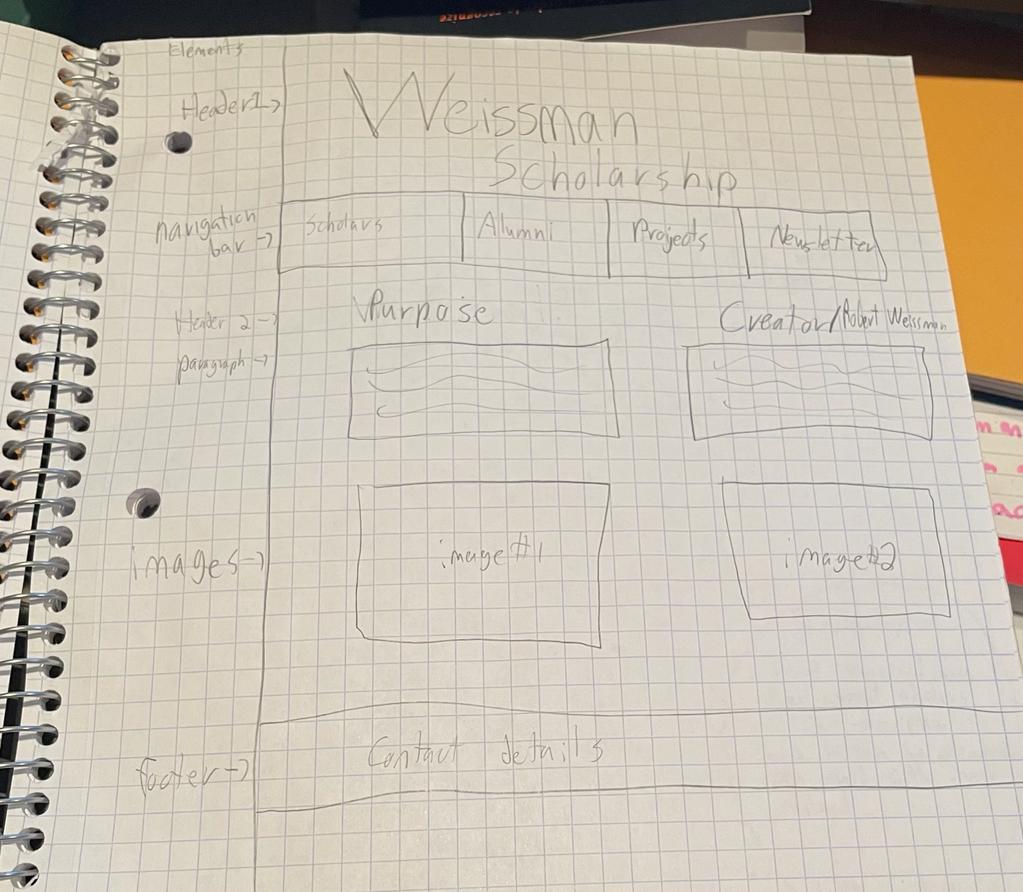 Elements
Header1->
Weissman
Scholarship
navigation
bar ->
Scholars
Alumni
Projects
Newsletter
Header 2->
Purpose
Creator/Robert Weissman
paragraph->
images->
image#1
image#2
footer->
Contact details